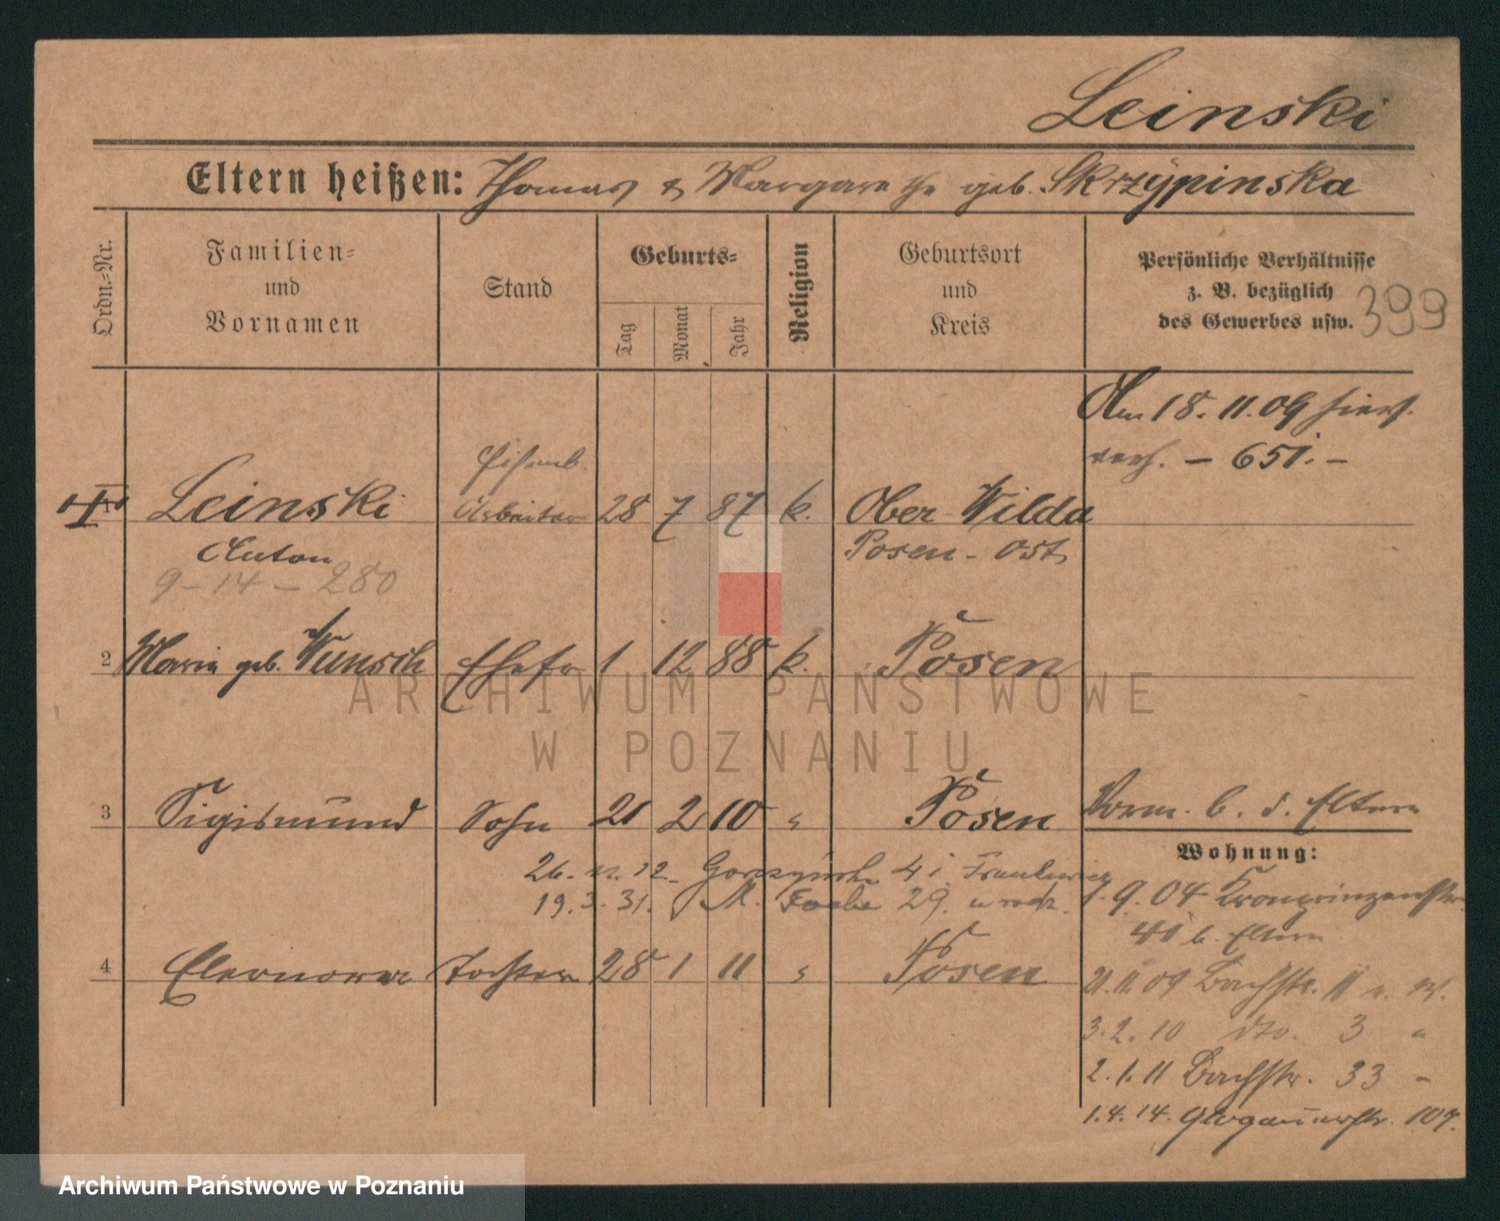 Leinski
Eltern heißen: Thomas & Margarethe geb. Skrzÿpinska
Ordn.-Nr.
Familien-
und
Vornamen
Stand
Geburts-
Tag
Monat
Jahr
Religion
Geburtsort
und
Kreis
Persönliche Verhältnisse
z. B. bezüglich
des Gewerbes usw.
399
Am 18. 11. 09 hier
verh. – 651. –
Eisenb.
1 Leinski Arbeiter 28 7 87 k. Ober Wilda
Anton Posen - Ost
9 – 14 – 280
2 Maria geb. Wunsch Ehefr 1 12 88 k. Posen
3 Sigismund Sohn 21 2 10 " Posen
Vorm. b. d. Eltern
Wohnung:
26. 12. 4
19. 3. 31. 29.
1. 9. 04 Kronprinzenstr.
b. Eltern
4 Eleonora Tochter 28 1 11 " Posen
21. 11. 09 Bachstr. 11
3. 2. 10 dto. 3 "
2. 1. 11 Bachstr. 33 "
1. 4. 14. Glogauerstr. 107.
ARCHIWUM PAŃSTWOWE
W POZNANIU
Archiwum Państwowe w Poznaniu